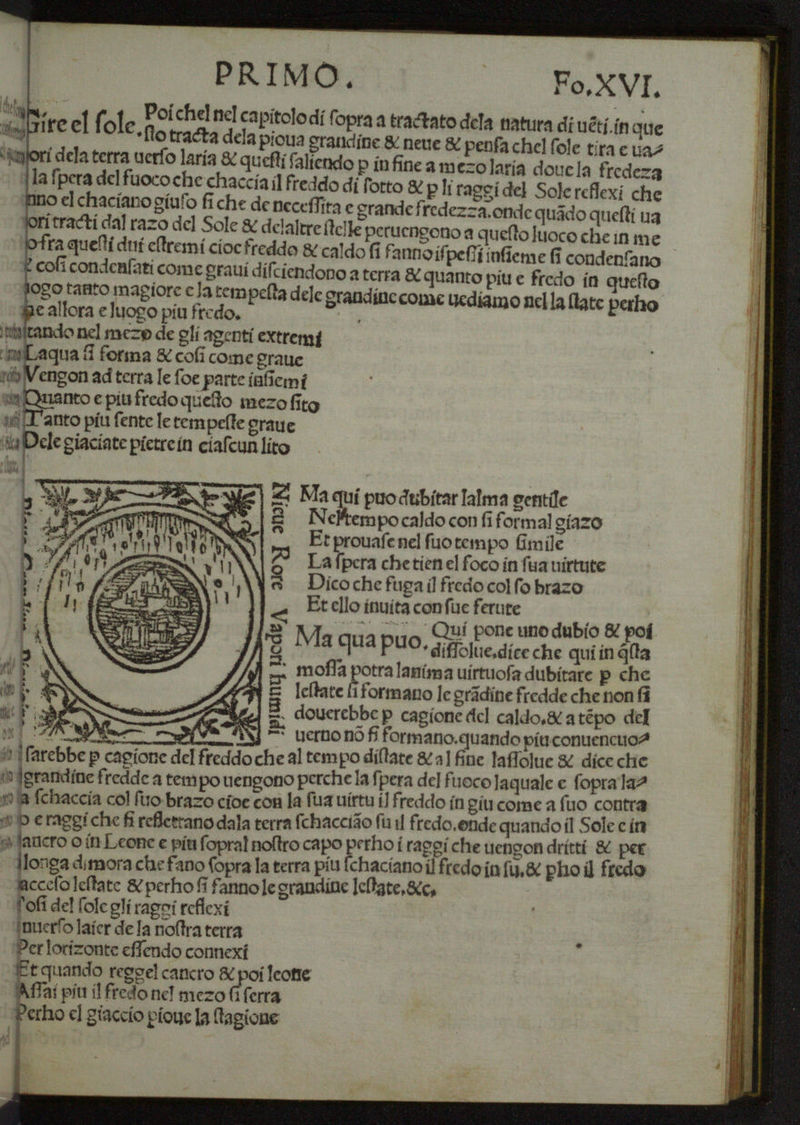 PRIMO. Fo.XVI.
Gire el sole. Poi chel nel capitolo di sopra a tractato dela natura di uēti.in que
sto tracta dela pioua grandine & neue & pensa chel sole tira e ua⸗
ori dela terra uerso laria & questi saliendo p in fine a mezo laria doue la fredeza
la spera del fuoco che chaccia il freddo di sotto & p li raggi del Sole reflexi che
nno el chaciano giuso si che de necessita e grande fredezza.onde quādo questi ua
ori tracti dal razo del Sole & delaltre stelle peruengono a questo luoco che in me
o fra questi dui estremi cioe freddo & caldo si fanno ispessi insieme si condensano
& cosi condensati come graui disciendono a terra & quanto piu e fredo in questo
logo tanto magiore e la tempesta dele grandine come uediamo nel la state perho
he allora e luogo piu fredo.
tando nel mezo de gli agenti extremi
Laqua si forma & cosi come graue
Vengon ad terra le soe parte insiemi
Quanto e piu fredo questo mezo sito
Tanto piu sente le tempeste graue
Dele giaciate pietre in ciascun lito
Nieue Rore Vapori humidi
Ma qui puo dubitar lalma gentile
Nel tempo caldo con si formal giazo
Et prouase nel suo tempo simile
La spera che tien el foco in sua uirtute
Dico che fuga il fredo col so brazo
Et ello inuita con sue ferute
Ma qua puo. Qui pone uno dubio & poi
dissolue.dice che qui in q̄sta
mossa potra lanima uirtuosa dubitare p che
lestate si formano le grādine fredde che non si
douerebbe p cagione del caldo.& a tēpo del
uerno nō si formano.quando piu conueneuo⸗
sarebbe p cagione del freddo che al tempo distate & al fine lassolue & dice che
grandine fredde a tempo uengono perche la spera del fuoco laquale e sopra la⸗
a schaccia col suo brazo cioe con la sua uirtu il freddo in giu come a suo contra
o e raggi che si reflettano dala terra schacciāo su il fredo.onde quando il Sole e in
ancro o in Leone e piu sopral nostro capo perho i raggi che uengon dritti & per
longa dimora che fano sopra la terra piu schaciano il fredo in su.& pho il fredo
acceso lestate & perho si fanno le grandine lestate.&c.
Cosi del sole gli raggi reflexi
Inuerso laier de la nostra terra
Per lorizonte essendo connexi
Et quando reggel cancro & poi leone
Assai piu il fredo nel mezo si serra
Perho el giaccio pioue la stagione